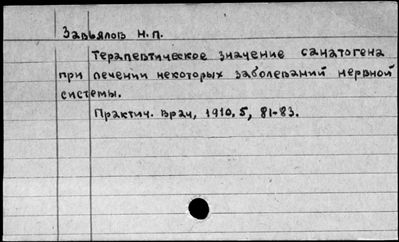 Завьялов Н.П.
Терапевтическое значение санатогена
при лечении некоторых заболеваний нервной
системы.
Практич. врач, 1910, 5, 81-83.